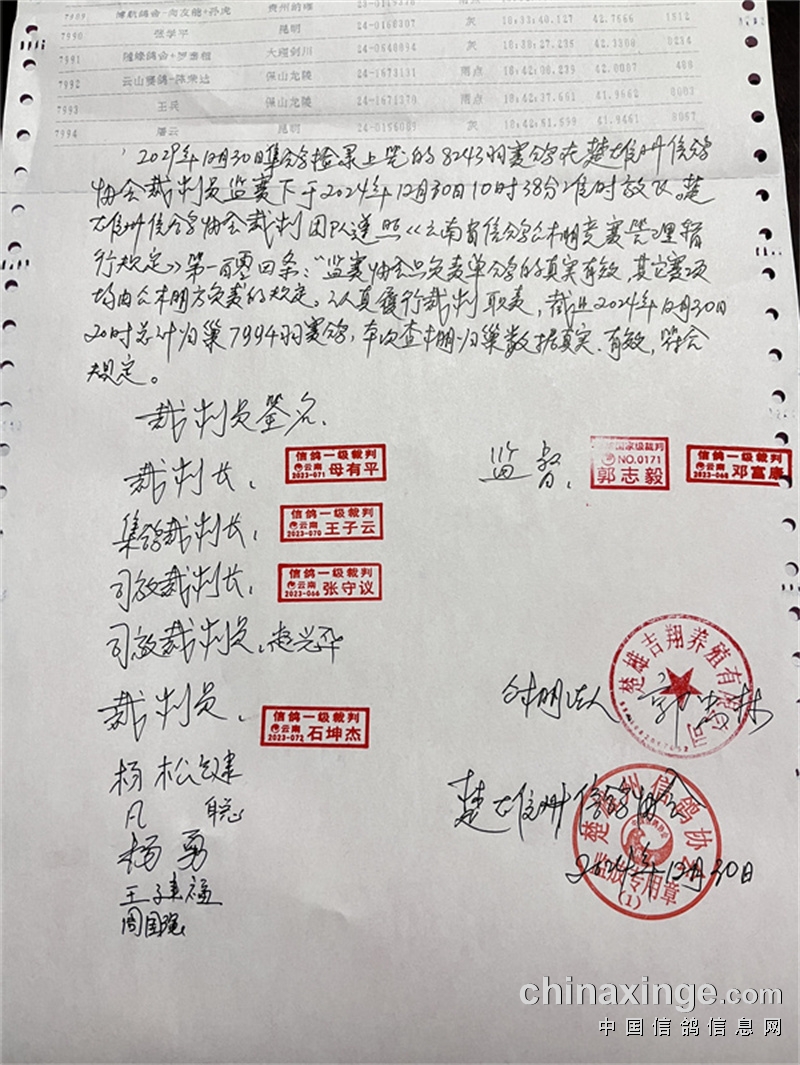 7989 博航鸽舍-向友德+孙虎
7990 张学平 昆明 24-0160307 灰 18:33:40.127 42.7666 1512
7991 大理剑川 24-0640894 灰 18:38:27.235 42.3308 0234
7992 云山赛鸽-陈荣达 保山龙陵 24-1673131 雨点 18:42:00.239 42.0007 400
7993 王兵 保山龙陵 24-1671370 雨点 18:42:37.661 41.9662 0003
7994 屠云 昆明 24-0156089 灰 18:42:51.599 41.9461 8067
2024年12月30日集鸽检录上笼的8243羽赛鸽在楚雄州信鸽
协会裁判员监赛下于2024年12月30日10时38分准时放飞。楚
雄州信鸽协会裁判团队遵照《云南省信鸽公棚竞赛管理暂
行规定》第一百零四条:"监赛协会只负责单鸽的真实有效,其它赛项
均由公棚方负责的规定。认真履行裁判职责,截止2024年12月30日
20时总计归巢7994羽赛鸽,本次查棚归巢数据真实、有效,符合
规定。
裁判员签名:
裁判长: 信鸽一级裁判 云南 2023-071 母有平 监督: 国家级裁判 NO.0171 郭志毅 信鸽一级裁判 云南 2023-068 邓富康
集鸽裁判长: 信鸽一级裁判 云南 2023-070 王子云
司放裁判长: 信鸽一级裁判 云南 2023-066 张守议
司放裁判员:赵兴华
楚雄吉翔养殖有限公司
公棚法人
裁判员: 信鸽一级裁判 云南 2023-072 石坤杰
杨松建
凡聪
楚雄州信鸽协会
楚雄州信鸽协会 监放专用章 (1)
杨勇
2024年12月30日
王建福
周国强
chinaxinge.com
中国信鸽信息网